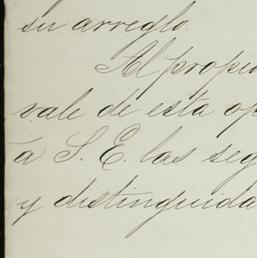 su arreglo.
Al propi
vale de esta op
á S. E. las seg
y distinguida